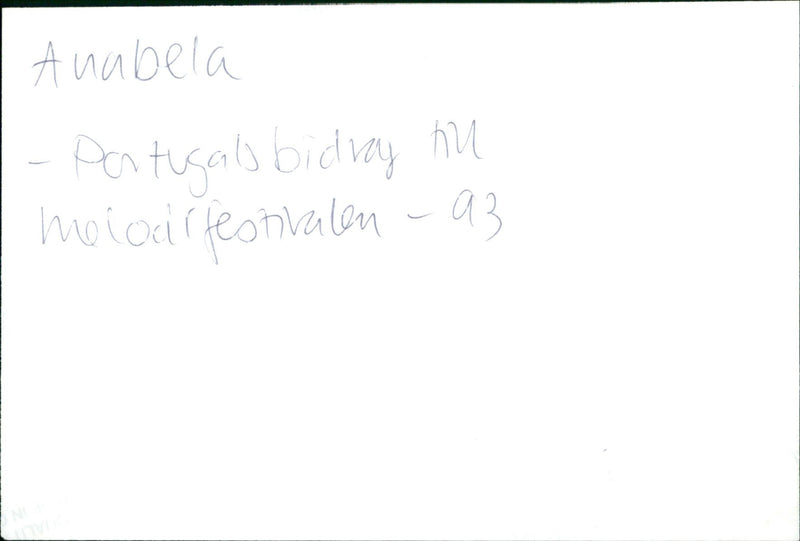 Anabela
- Portugals bidrag till
melodifestivalen - 93